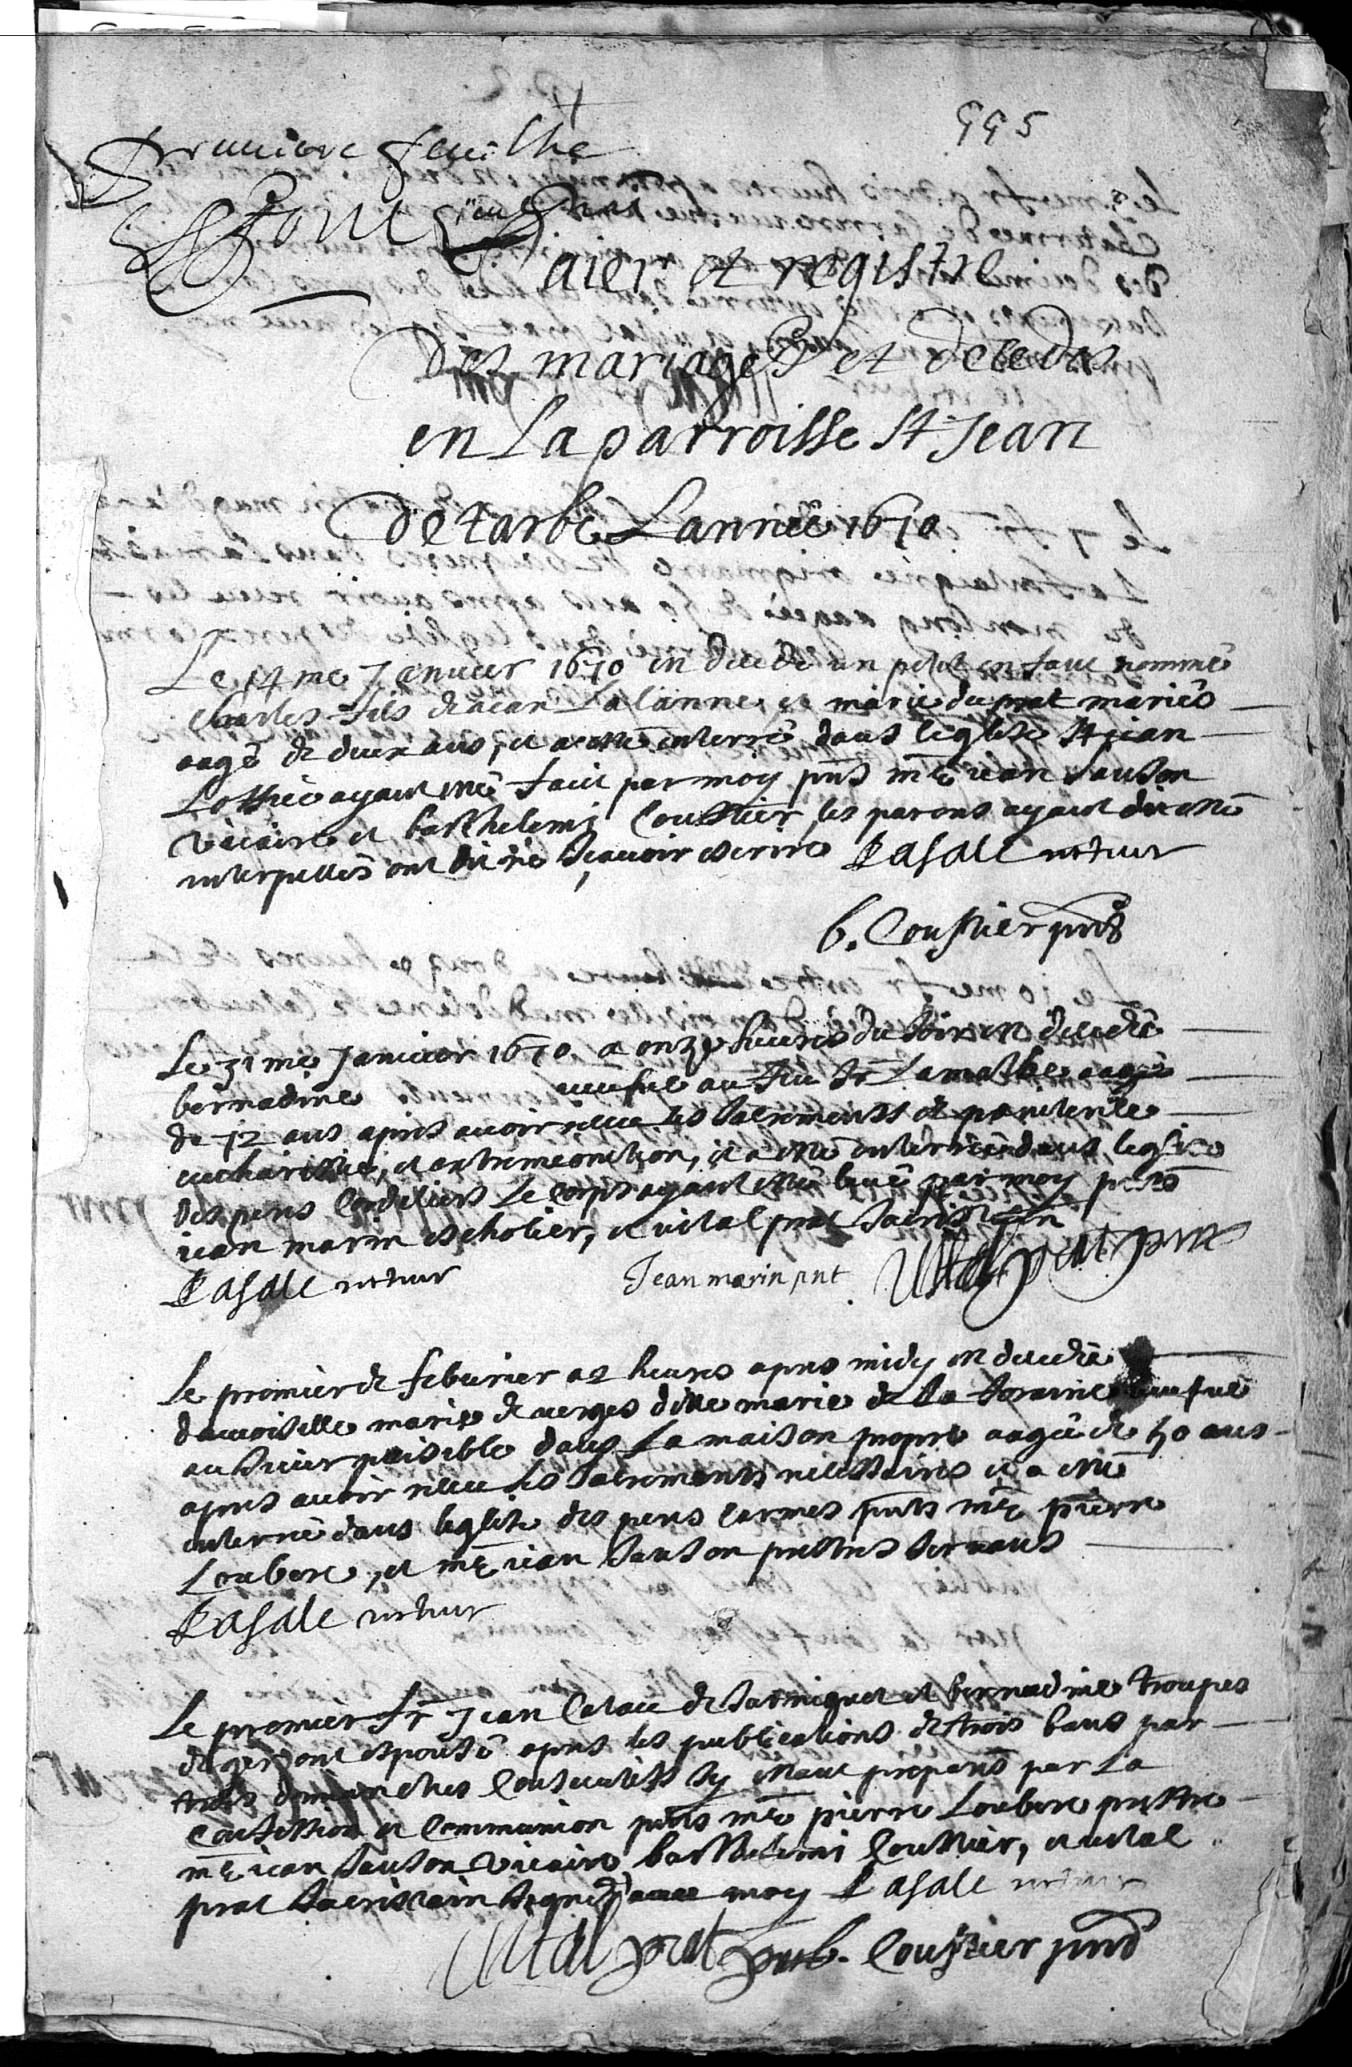 995
Premiere feuilhe
Papier et registre
Des mariages et decedés
en La parroisse St Jean
de tarbe Lannéé 1670
Le 14me Januier 1670 en decedé un petit enfant nommé
charles fils de Jean Lalanne et marie du prat mariés
aagé de deux ans, et a esté enterré dans leglise St jean
Loffice ayant esté faict par moy pnts me iean sanson
vicaire et barthelemi Coustier, les parens ayant
interpellés ont dit ne scauoir escrire Casale recteur
b. Coustier pnt
Le 31me Januier 1670 a onze heures du soir en decedé
bernadine veufue au feu Sr Lamathe aagé
de 72 ans apres auoir receu les sacrements de pœnitence
eucharistie, et extremeonction, et a esté enterrée dans leglise
des peres Cordeliers Le corps ayant esté leué par moy pnts
iean marin escholier, et vital prat sacristain
Casale recteur Jean marin pnt Vital prat pnt
Le premier de febvrier a 2 heures apres midy en decedé
damoiselle marie de verges ditte marie de La veufue
au sieur peisible dans La maison propre aagée de 50 ans
apres auoir receu les sacrements necessaires et a esté
enterré dans leglise des peres carmes pnts me pierre
Loubere, et me iean sanson prestres seruans
Casale recteur
Le premier fr Jean de Sarniguet et bernadine troupes
de ger ont espousé apres les publications de trois bans par
trois dimanches consecutifs sy estant preparés par La
confession et Communion pnts me pierre Loubere prestre
me iean sanson vicaire barthelemi Coustier, et vital
prat sacristain signés auec moy Casale recteur
Vital prat pnt b. Coustier pnt